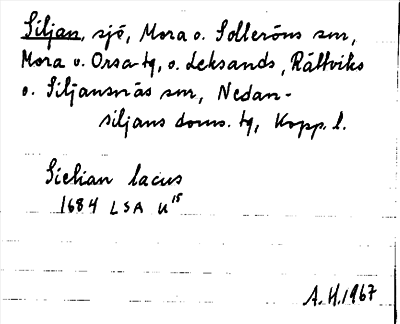 Siljan, sjö, Mora o. Solleröns sm,
Mora o. Orsa tg, o. Leksands, Rättviks
o. Siljansnäs sm, Nedan-
siljans doms. tg, Kopp. l.
Sielian lacus
1684 LSA U 15
A.H. 1967